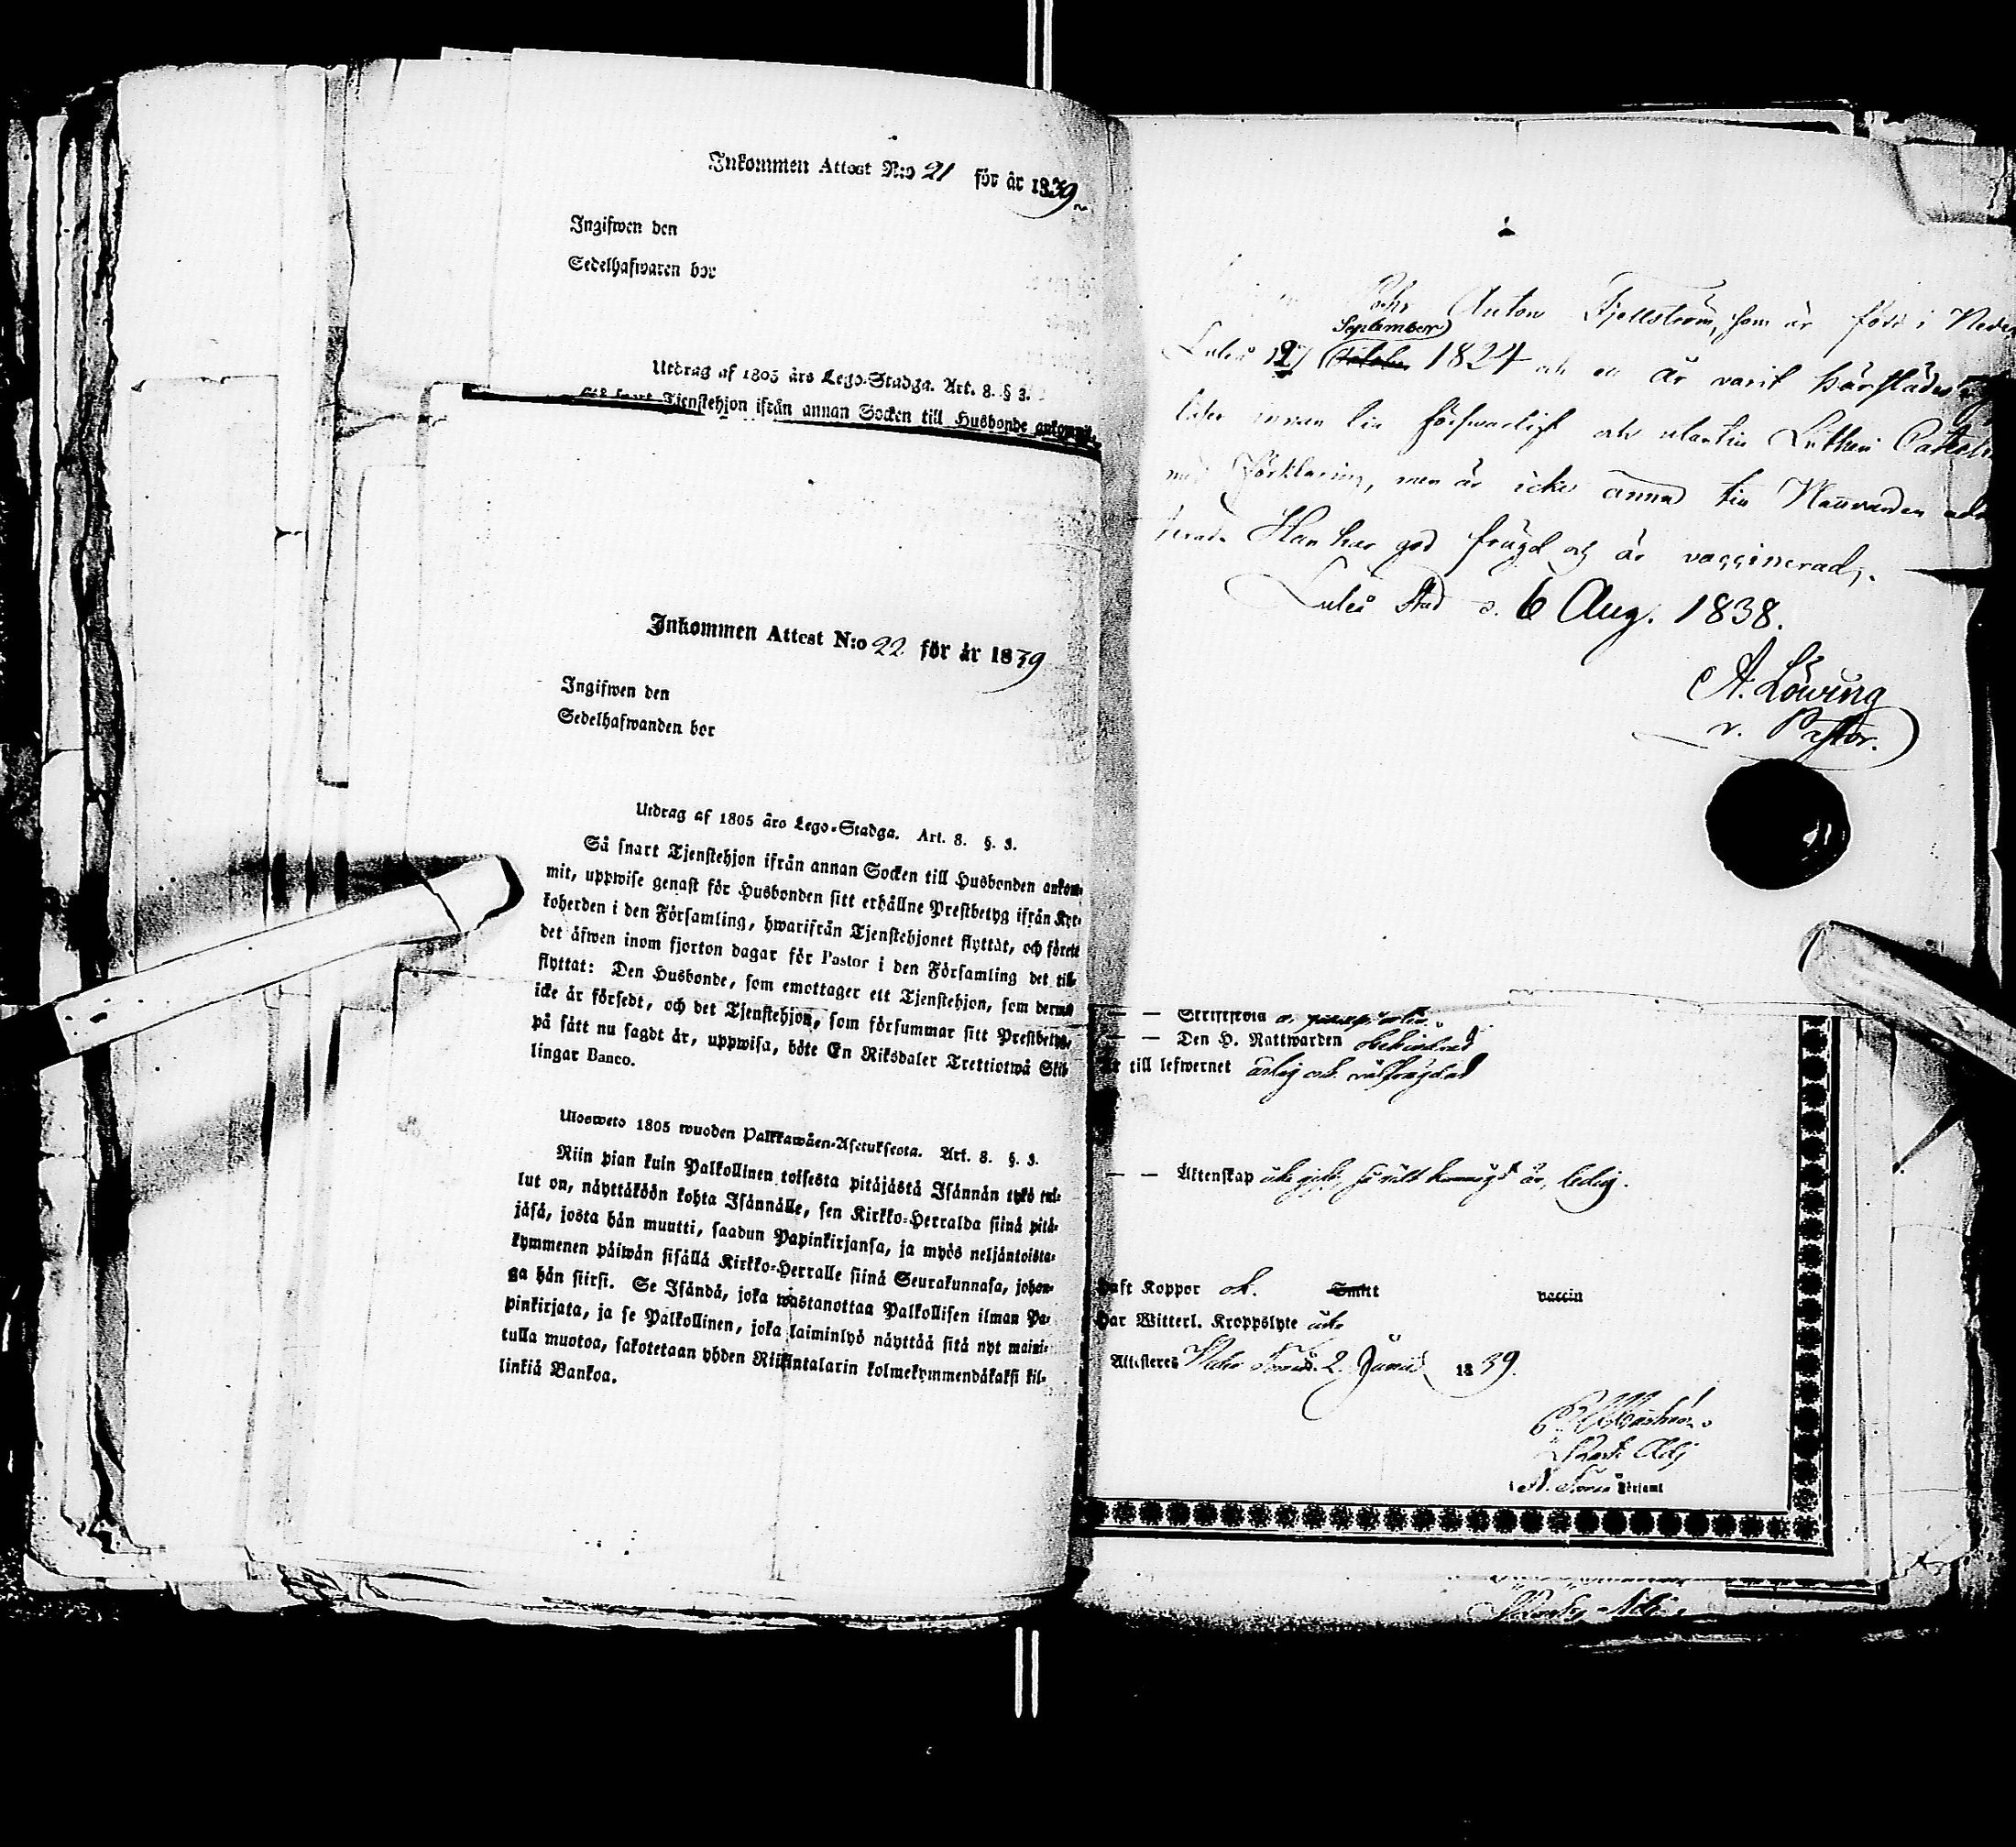 Inkommen Attest N:o 21 för år 1839
Ingifwen den
Sedelhafwaren bor
Utdrag af 1805 års Lego-Stadga. Art. 8. § 3.
Så snart Tjenstehjon ifrån annan Socken till Husbonde ankommit,
Inkommen Attest N:o 22 för år 1839
Ingifwen den
Sedelhafwanden bor
Utdrag af 1805 års Lego-Stadga. Art. 8. §. 3.
Så snart Tjenstehjon ifrån annan Socken till Husbonden ankom-
mit, uppwise genast för Husbonden sitt erhållne Prestbetyg ifrån Kyr-
koherden i den Församling, hwarifrån Tjenstehjonet flyttat, och förete
det äfwen inom fjorton dagar för Pastor i den Församling det till-
flyttat: Den Husbonde, som emottager ett Tjenstehjon, som dermed
icke är försedt, och det Tjenstehjon, som försummar sitt Prestbetyg,
på sätt nu sagdt är, uppwisa, böte En Riksdaler Trettiotwå Skil-
lingar Banco.
Ulosweto 1805 wuoden Palkkawäen-Asetuksesta. Art. 8. §. 3.
Niin pian kuin Palkollinen toisesta pitäjästä Isännän tykö tul-
lut on, näyttäköön kohta Isännälle, sen Kirkko-Herralda siinä pitä-
jäsä, josta hän muutti, saadun Papinkirjansa, ja myös neljäntoista-
kymmenen päiwän sisällä Kirkko-Herralle siinä Seurakunnasa, johon-
ga hän siirsi. Se Isändä, joka wastanottaa Palkollisen ilman Pa-
pinkirjata, ja se Palkollinen, joka laiminlyö näyttää sitä nyt maini-
tulla muotoa, sakotetaan yhden Riikintalarin kolmekymmendäkaksi kil-
linkiä Bankoa.
Anton Fjellström, som är född i Neder
September
Luleå 17 1824 och en år varit härstädes
innan till försvarligt och Lutheri
med Förklaring, men är icke ännu till Nattvarden
Han har god frägd och är vaccinerad,.
Luleå Stad d. 6 Aug. 1838.
A. Löwing
v. Pastor.
— — Skriftskola
— — Den H. Nattwarden obehindrad
Är till lefwernet ärlig och välfrägdad
— — Äktenskap icke är, ledig.
Haft Koppor Smitt vaccin
Har Witterl. Kroppslyte icke
Attesteres Neder Torneå 2 Junii 1839.
Adj
i N. Torneå Församl